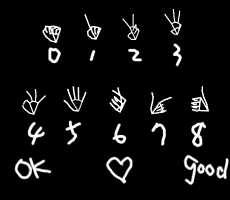 0 1 2 3
4 5 6 7 8
OK ♡ good